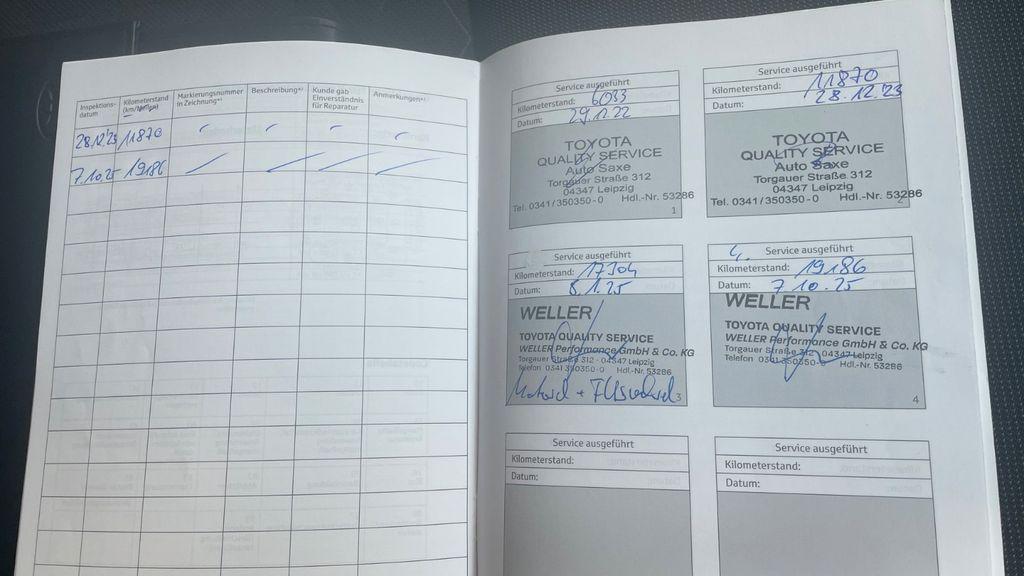 Inspektions-datum Kilometerstand (km/Meilen) Markierungsnummer in Zeichnung*¹ Beschreibung*¹ Kunde gab Einverständnis für Reparatur Anmerkungen*¹
28.12.23 11870
7.10.25 19186
Service ausgeführt
Kilometerstand: 6033
Datum: 29.12.22
TOYOTA
QUALITY SERVICE
Auto Saxe
Torgauer Straße 312
04347 Leipzig
Tel. 0341/350350-0 Hdl.-Nr. 53286
1
Service ausgeführt
Kilometerstand: 11870
Datum: 28.12.23
TOYOTA
QUALITY SERVICE
Auto Saxe
Torgauer Straße 312
04347 Leipzig
Tel. 0341/350350-0 Hdl.-Nr. 53286
2
Service ausgeführt
Kilometerstand: 17304
Datum: 8.1.25
WELLER
TOYOTA QUALITY SERVICE
WELLER Performance GmbH & Co. KG
Torgauer Straße 312 - 04347 Leipzig
Telefon 0341 350350-0 Hdl.-Nr. 53286
3
4.
Service ausgeführt
Kilometerstand: 19186
Datum: 7.10.25
WELLER
TOYOTA QUALITY SERVICE
WELLER Performance GmbH & Co. KG
Torgauer Straße 312 - 04347 Leipzig
Telefon 0341 350350-0 Hdl.-Nr. 53286
4
Service ausgeführt
Kilometerstand:
Datum:
Service ausgeführt
Kilometerstand:
Datum: